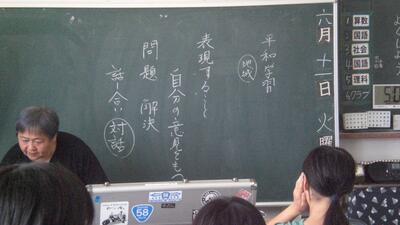 六月十一日 火曜
平和学習
地域
表現すること
自分の意見をもつ
問題 解決
話し合い 対話
1 算数
2 国語
3 社会
4 国語
5 理科
6 クラブ
58